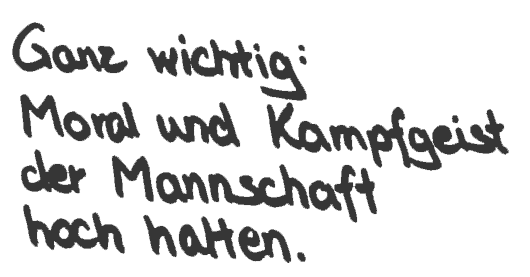 Ganz wichtig:
Moral und Kampfgeist
der Mannschaft
hoch halten.